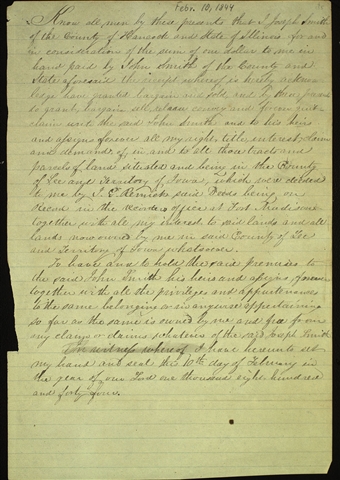 Febr. 10, 1844
Know all men by these presents that I Joseph Smith
of the County of Hancock and State of Illinois for and
in consideration of the sum of one dollar to me in
hand paid by John Smith of the County and
State aforesaid the receipt whereof is hereby acknow
lege have granted bargain and sold and by these presents
do grant, bargain sell release convey and forever quit-
claim unto the said John Smith and to his heirs
and assigns forever all my right, title, interest, claim
and demand of, in and to all those tracts and
parcels of land situated and being in the County
of Lee and Territory of Iowa, which were deeded
to me by J. Remick, said Deeds being on
Record in the Recorders office at Fort Madison
together with all my interest to said lands and all
lands now owned by me in said County of Lee
and Territory of Iowa whatsoever.
To have and to hold the said premises to
the said John Smith his heirs and assigns forever
together with all the privileges and appurtenances
to the same belonging or in anywise appertaining
so far as the same is owned by me and free from
any claim or claims whatever of the said Joseph Smith.
In witness whereof I have hereunto set
my hand and seal this 10th day of February in
the year of our Lord one thousand eight hundred
and forty four.